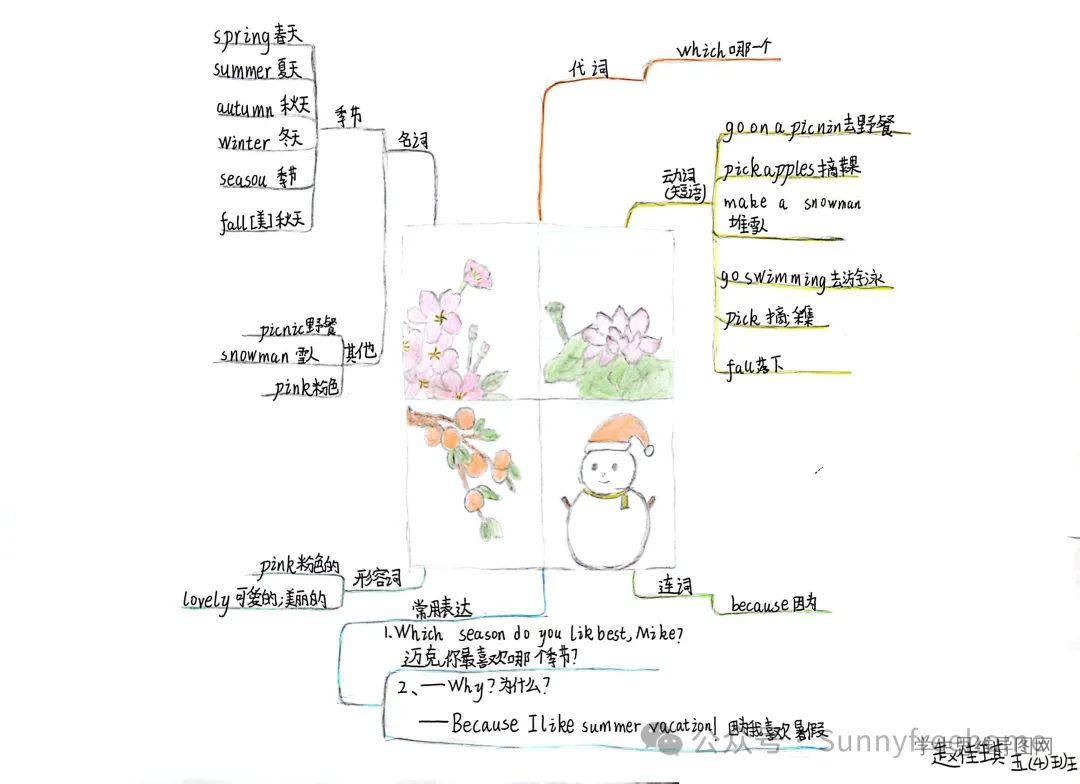 spring春天
summer夏天
autumn 秋天
Winter 冬天
seasou 季节
fall[美]秋天
季节
名词
picnic野餐
snowman 雪人
pink粉色
其他
代词
which哪一个
动词
(短语)
go on a picnin去野餐
pick apples摘苹果
make a snowman
堆雪人
go swimming去游泳
pick 摘;采集
fall落下
pink粉色的
lovely可爱的;美丽的
形容词
连词
because因为
常用表达
1.Which season do you likbest,Mike?
迈克,你最喜欢哪个季节?
2、—Why?为什么?
—Because I like summer vacation! 因为我喜欢暑假
公众号 Sunnyfreehome
赵佳琪 五(4)班